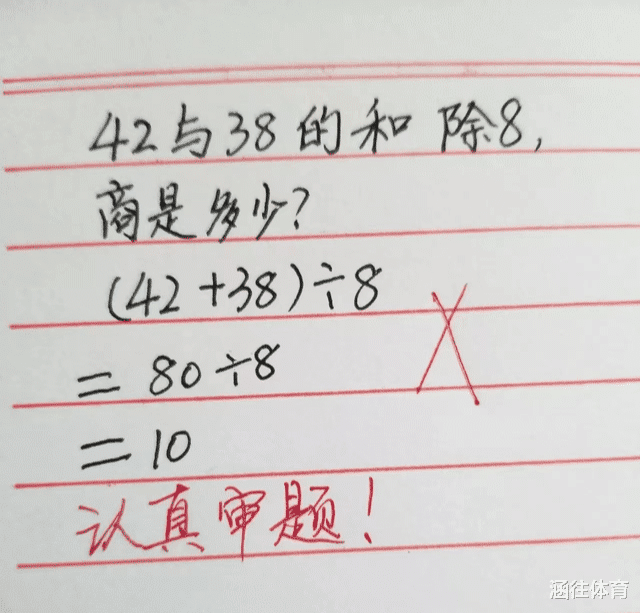 42与38的和 除8,
商是多少?
(42+38)÷8
=80÷8
=10
认真审题!
涵往体育